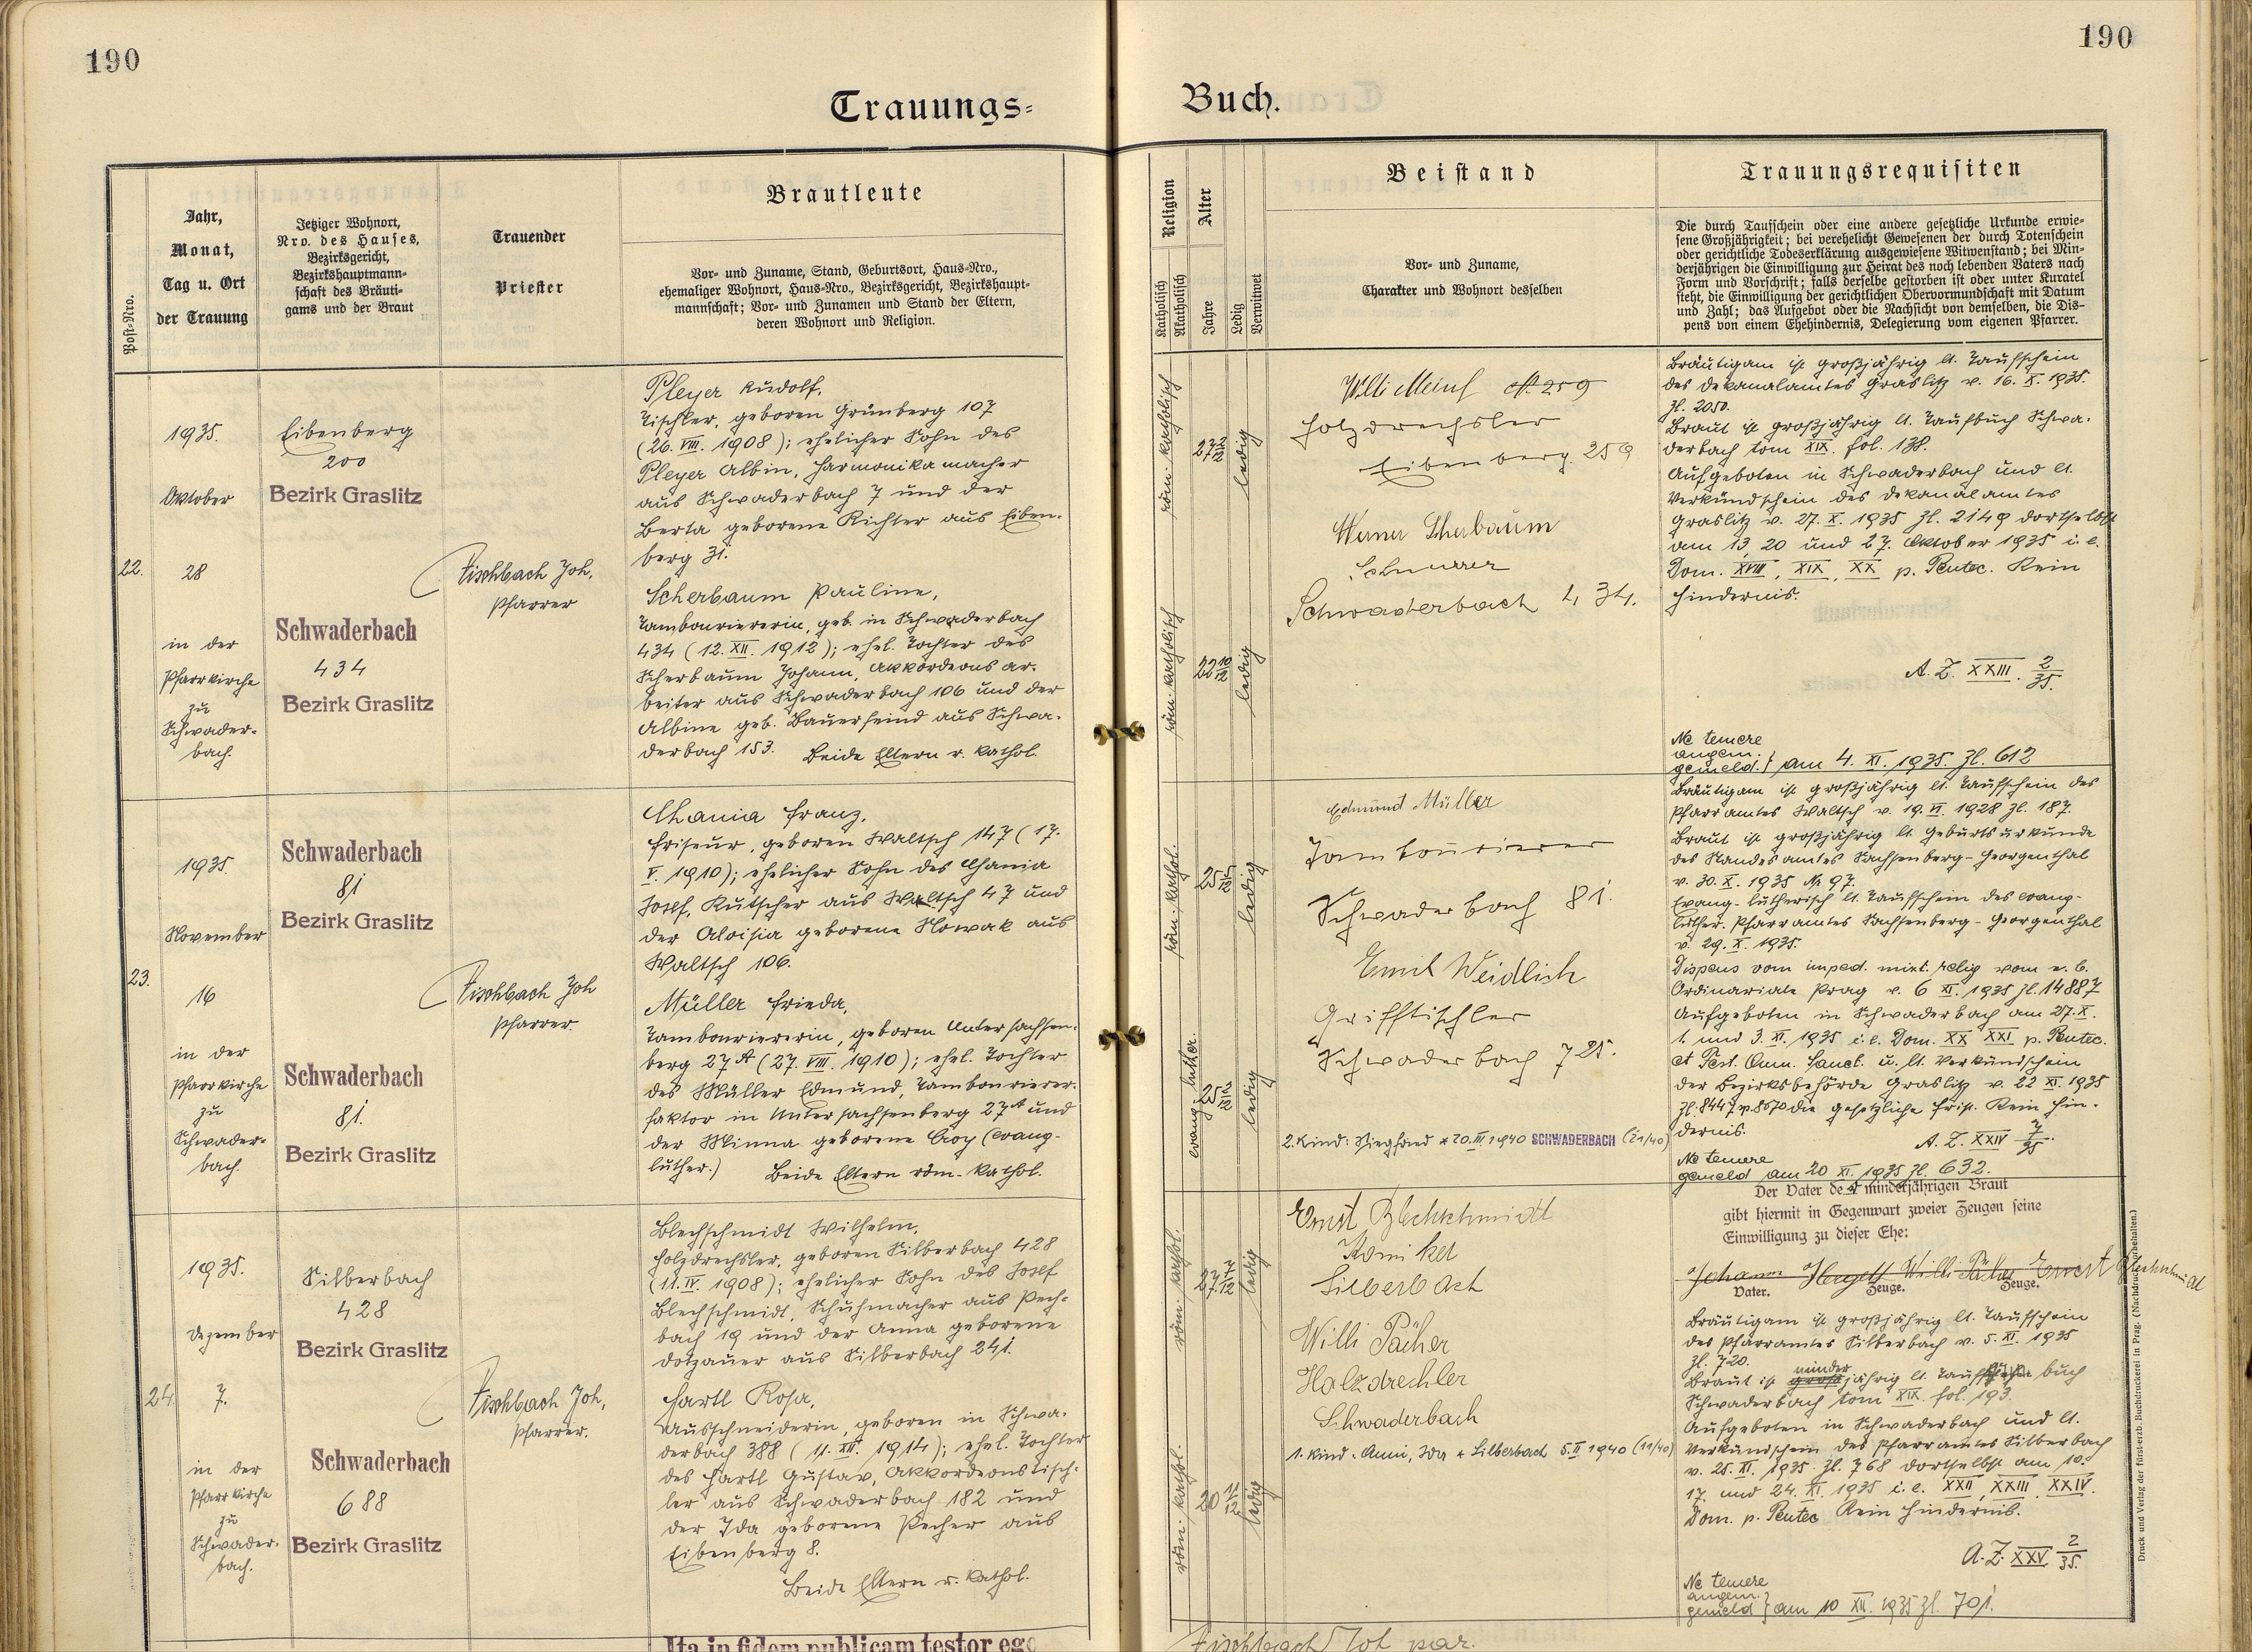 190
190
Trauungs=
Buch.
Post-Nro.
Jahr,
Monat,
Tag u. Ort
der Trauung
Jetziger Wohnort,
Nro. des Hauses,
Bezirksgericht,
Bezirkshauptmann-
schaft des Bräuti-
gams und der Braut
Trauender
Priester
Brautleute
Vor- und Zuname, Stand, Geburtsort, Haus-Nro.,
ehemaliger Wohnort, Haus-Nro., Bezirksgericht, Bezirkshaupt-
mannschaft; Vor- und Zunamen und Stand der Eltern,
deren Wohnort und Religion.
Religion
Katholisch
Akatholisch
Alter
Jahre
Ledig
Verwitwet
Beistand
Vor- und Zuname,
Charakter und Wohnort desselben
Trauungsrequisiten
Die durch Taufschein oder eine andere gesetzliche Urkunde erwie-
sene Großjährigkeit; bei verehelicht Gewesenen der durch Totenschein
oder gerichtliche Todeserklärung ausgewiesene Witwenstand; bei Min-
derjährigen die Einwilligung zur Heirat des noch lebenden Vaters nach
Form und Vorschrift; falls derselbe gestorben ist oder unter Kuratel
steht, die Einwilligung der gerichtlichen Obervormundschaft mit Datum
und Zahl; das Aufgebot oder die Nachsicht von demselben, die Dis-
pens von einem Ehehindernis, Delegierung vom eigenen Pfarrer.
22.
1935.
Oktober
28
in der
Pfarrkirche
zu
Schwader-
bach.
Eibenberg
200
Bezirk Graslitz
Schwaderbach
434
Bezirk Graslitz
Fischbach Joh,
Pfarrer
Pleyer Rudolf,
Tischler, geboren Grünberg 107
(26. VIII. 1908); ehelicher Sohn des
Pleyer Albin, Harmonikamacher
aus Schwaderbach 7 und der
Berta geborene Richter aus Eiben-
berg 31.
Scherbaum Pauline,
Tambouriererin, geb. in Schwaderbach
434 (12. XII. 1912); ehel. Tochter des
Scherbaum Johann, Akkordeonsar-
beiter aus Schwaderbach 106 und der
Albine geb. Bauerfeind aus Schwa-
derbach 153. Beide Eltern r. kathol.
röm. katholisch
27 2/12
ledig
röm. katholisch
22 10/12
ledig
Willi Meinl 259
Holzdrechsler
Eibenberg 259
Werner Scherbaum
Schwaderbach 434.
Bräutigam ist großjährig lt. Taufschein
des Dekanalamtes Graslitz v. 16. X. 1935.
Zl. 2050.
Braut ist großjährig lt. Taufbuch Schwa-
derbach tom XIX. fol. 138.
Aufgeboten in Schwaderbach und lt.
Verkündschein des Dekanalamtes
Graslitz v. 27. X. 1935 Zl. 2149 dortselbst
am 13, 20 und 27. Oktober 1935 i. e.
Dom. XVIII, XIX, XX p. Pentec. Kein
Hindernis.
A. Z. XXIII. 2/35.
Ne temere
angem.
gemeld. } am 4. XI. 1935. Zl. 612
23.
1935.
November
16
in der
Pfarrkirche
zu
Schwader-
bach.
Schwaderbach
81
Bezirk Graslitz
Schwaderbach
81.
Bezirk Graslitz
Fischbach Joh
Pfarrer.
Chania Franz,
Friseur, geboren Waltsch 147 (17.
V. 1910); ehelicher Sohn des Chania
Josef, Kutscher aus Waltsch 47 und
der Aloisia geborene Nowak aus
Waltsch 106.
Müller Frieda,
Tambouriererin, geboren Untersachsen-
berg 27A (27. VIII. 1910); ehel. Tochter
des Müller Edmund, Tambourierer-
faktor in Untersachsenberg 27A und
der Minna geborene (evang-
luther.) Beide Eltern röm-kathol.
röm. kathol.
25
ledig
evang-luther.
25 2/12
ledig
Edmund Müller
Tambourierer
Schwaderbach 81.
Emil Weidlich
Grifftischler
Schwaderbach 725.
2. Kind: Siegfried * 20. III 1940 SCHWADERBACH (21/40)
Bräutigam ist großjährig lt. Taufschein des
Pfarramtes Waltsch v. 19. VI. 1928 Zl. 187.
Braut ist großjährig lt. Geburtsurkunde
des Standesamtes Sachsenberg-Georgenthal
v. 30. X. 1935 Nr 97.
Evang-lutherisch lt. Taufschein des evang-
luther. Pfarramtes Sachsenberg-Georgenthal
v. 29. X. 1935.
Dispens vom imped. mixt. relig vom e. b.
Ordinariate Prag v. 6 XI. 1935 Zl. 14887
Aufgeboten in Schwaderbach am 27. X.
1. und 3. XI. 1935 i. e. Dom. XX XXI p. Pentec.
et Fest. Omn. Sanct. u. lt. Verkündschein
der Bezirksbehörde Graslitz v. 22 XI. 1935
Zl. 8447 v. 8570 die gesetzliche Frist. Kein Hin-
dernis.
A. Z. XXIV 7/35.
Ne temere
gemeld am 20 XI. 1935 Zl. 632.
24.
1935.
Dezember
7.
in der
Pfarrkirche
zu
Schwader-
bach.
Silberbach
428
Bezirk Graslitz
Schwaderbach
688
Bezirk Graslitz
Fischbach Joh,
Pfarrer.
Blechschmidt Wilhelm,
Holzdrechsler, geboren Silberbach 428
(11. IV. 1908); ehelicher Sohn des Josef
Blechschmidt, Schuhmacher aus Pech-
bach 19 und der Anna geborene
Dotzauer aus Silberbach 241.
Hartl Rosa,
Ausschneiderin, geboren in Schwa-
derbach 388 (11. XII. 1914); ehel. Tochter
des Hartl Gustav, Akkordeonstisch-
ler aus Schwaderbach 182 und
der Ida geborene Pecher aus
Eibenberg 8.
Beide Eltern r. kathol.
röm. kathol.
27 7/12
ledig
röm. kathol.
20 11/12
ledig
Ernst Blechschmidt
Silberbach
Willi Pächer
Holzdrechler
Schwaderbach
1. Kind: Anni, Ida * Silberbach 5. II 1940 (11/40)
Der Vater der minderjährigen Braut
gibt hiermit in Gegenwart zweier Zeugen seine
Einwilligung zu dieser Ehe:
Johann Willi Pächer Ernst Blechschmidt
Vater. Zeuge. Zeuge.
Bräutigam ist großjährig lt. Taufschein
des Pfarramtes Silberbach v. 5. XI. 1935
Zl. 720.
minder
Braut ist großjährig lt. Taufschein buch
Schwaderbach tom XIX. fol. 193.
Aufgeboten in Schwaderbach und lt.
Verkündschein des Pfarramtes Silberbach
v. 25. XI. 1935. Zl. 768 dortselbst am 10.
17. und 24. XI. 1935 i. e. XXII, XXIII, XXIV.
Dom. p. Pentec Kein Hindernis.
A. Z. XXV 2/35.
Ne temere
angem.
gemeld } am 10 XII. 1935 Zl. 701.
Druck und Verlag der fürst-erzb. Buchdruckerei in Prag. (Nachdruck vorbehalten.)
Ita in fidem publicam testor ego
Fischbach Joh par.